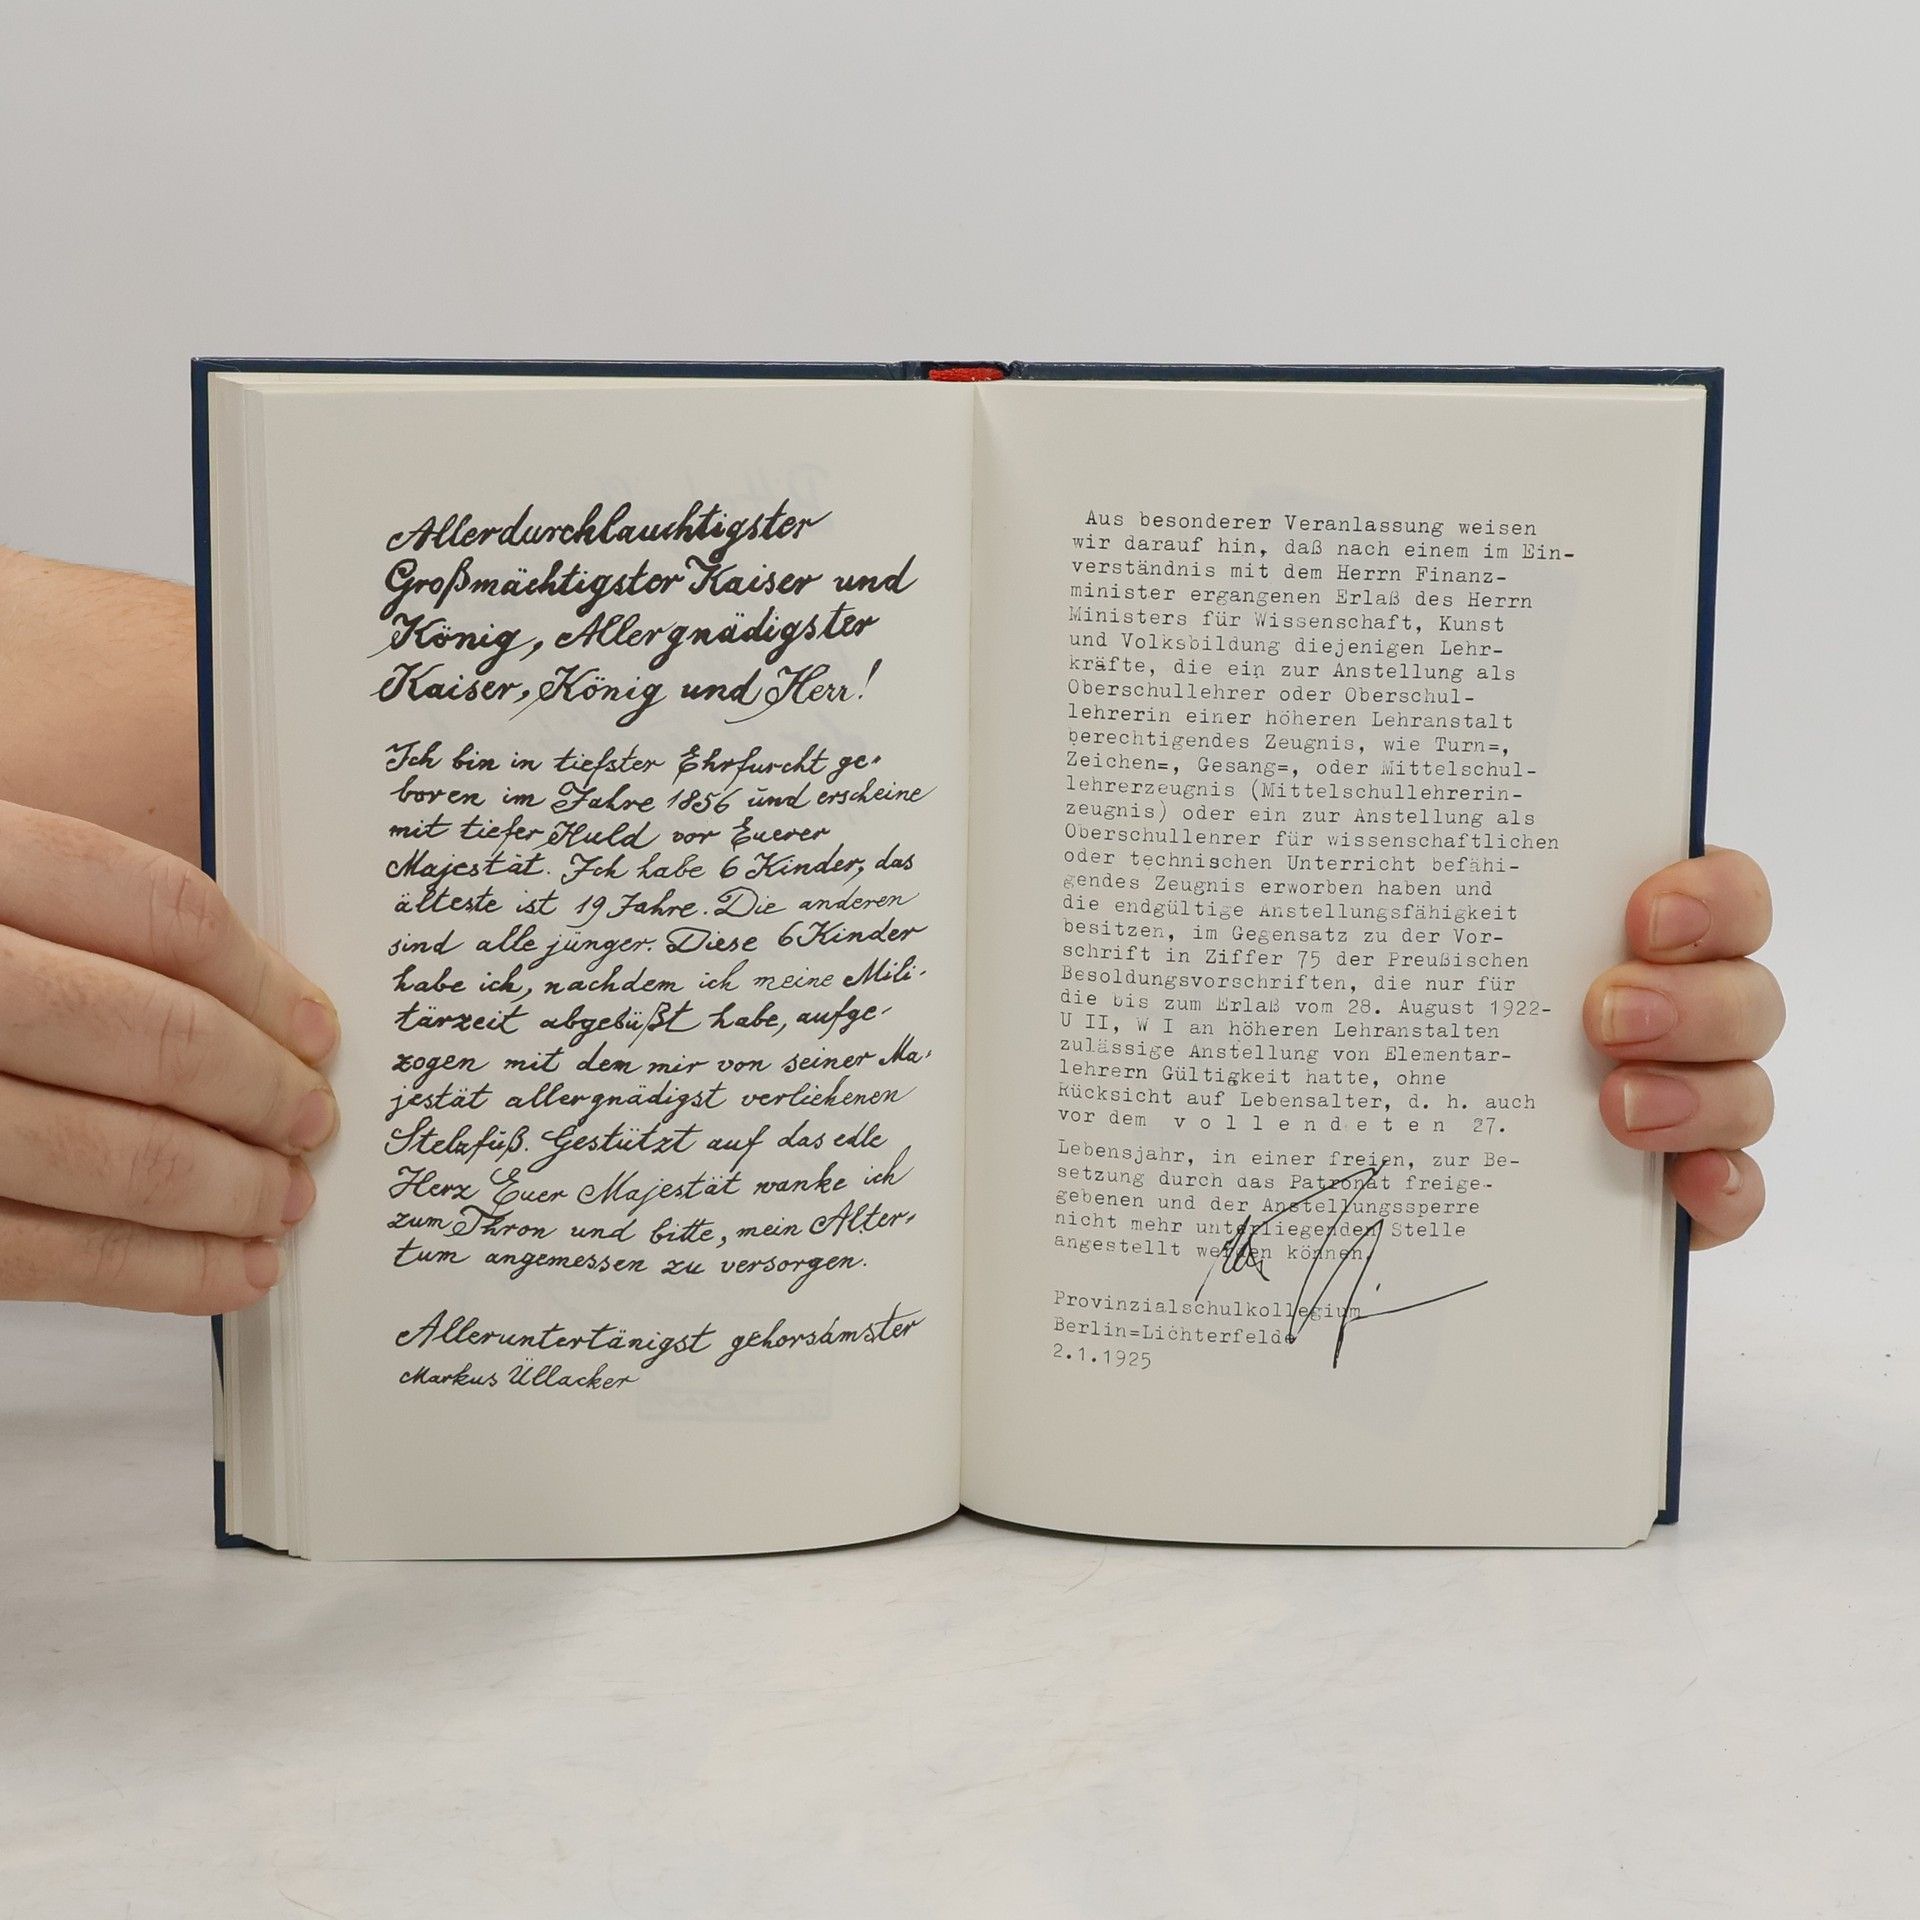 Allerdurchlauchtigster
Großmächtigster Kaiser und
König, Allergnädigster
Kaiser, König und Herr!
Ich bin in tiefster Ehrfurcht ge-
boren im Jahre 1856 und erscheine
mit tiefer Huld vor Euerer
Majestät. Ich habe 6 Kinder, das
älteste ist 19 Jahre. Die anderen
sind alle jünger. Diese 6 Kinder
habe ich, nachdem ich meine Mili-
tärzeit abgebüßt habe, aufge-
zogen mit dem mir von seiner Ma-
jestät allergnädigst verliehenen
Stelzfuß. Gestützt auf das edle
Herz Euer Majestät wanke ich
zum Thron und bitte, mein Alter-
tum angemessen zu versorgen.
Alleruntertänigst gehorsamster
Markus Üllacker
Aus besonderer Veranlassung weisen
wir darauf hin, daß nach einem im Ein-
verständnis mit dem Herrn Finanz-
minister ergangenen Erlaß des Herrn
Ministers für Wissenschaft, Kunst
und Volksbildung diejenigen Lehr-
kräfte, die ein zur Anstellung als
Oberschullehrer oder Oberschul-
lehrerin einer höheren Lehranstalt
berechtigendes Zeugnis, wie Turn=,
Zeichen=, Gesang=, oder Mittelschul-
lehrerzeugnis (Mittelschullehrerin-
zeugnis) oder ein zur Anstellung als
Oberschullehrer für wissenschaftlichen
oder technischen Unterricht befähi-
gendes Zeugnis erworben haben und
die endgültige Anstellungsfähigkeit
besitzen, im Gegensatz zu der Vor-
schrift in Ziffer 75 der Preußischen
Besoldungsvorschriften, die nur für
die bis zum Erlaß vom 28. August 1922-
U II, W I an höheren Lehranstalten
zulässige Anstellung von Elementar-
lehrern Gültigkeit hatte, ohne
Rücksicht auf Lebensalter, d. h. auch
vor dem v o l l e n d e t e n 27.
Lebensjahr, in einer freien, zur Be-
setzung durch das Patronat freige-
gebenen und der Anstellungssperre
nicht mehr unterliegenden Stelle
angestellt werden können.
Provinzialschulkollegium
Berlin=Lichterfelde
2.1.1925